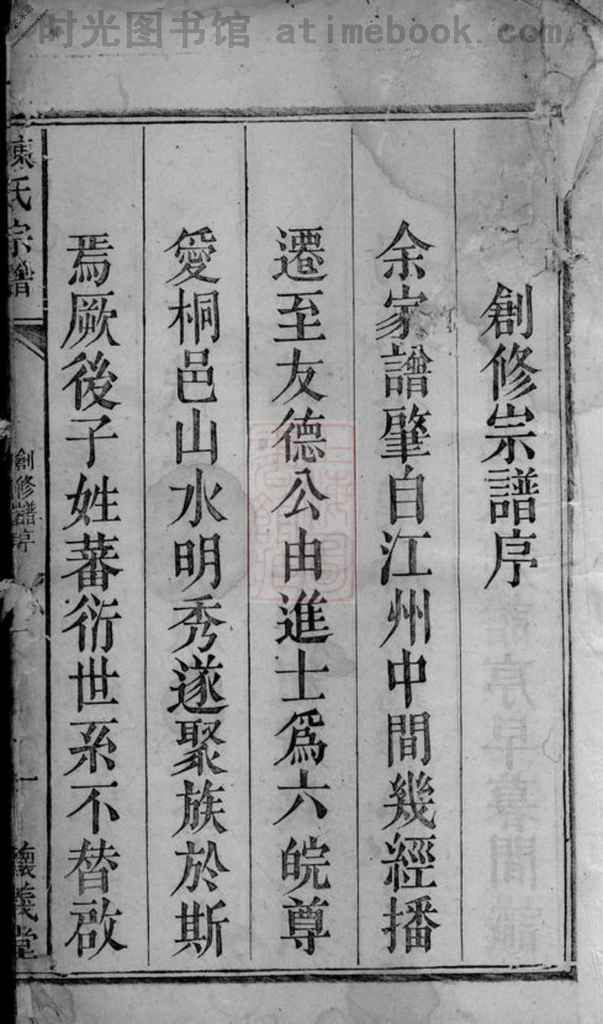 时光图书馆 atimebook.com
創修宗譜序
余家譜肇自江州中間幾經播
遷至友德公由進士爲六皖尊
愛桐邑山水明秀遂聚族於斯
焉厥後子姓蕃衍世系不替啟
氏宗譜
創修譜序
義堂